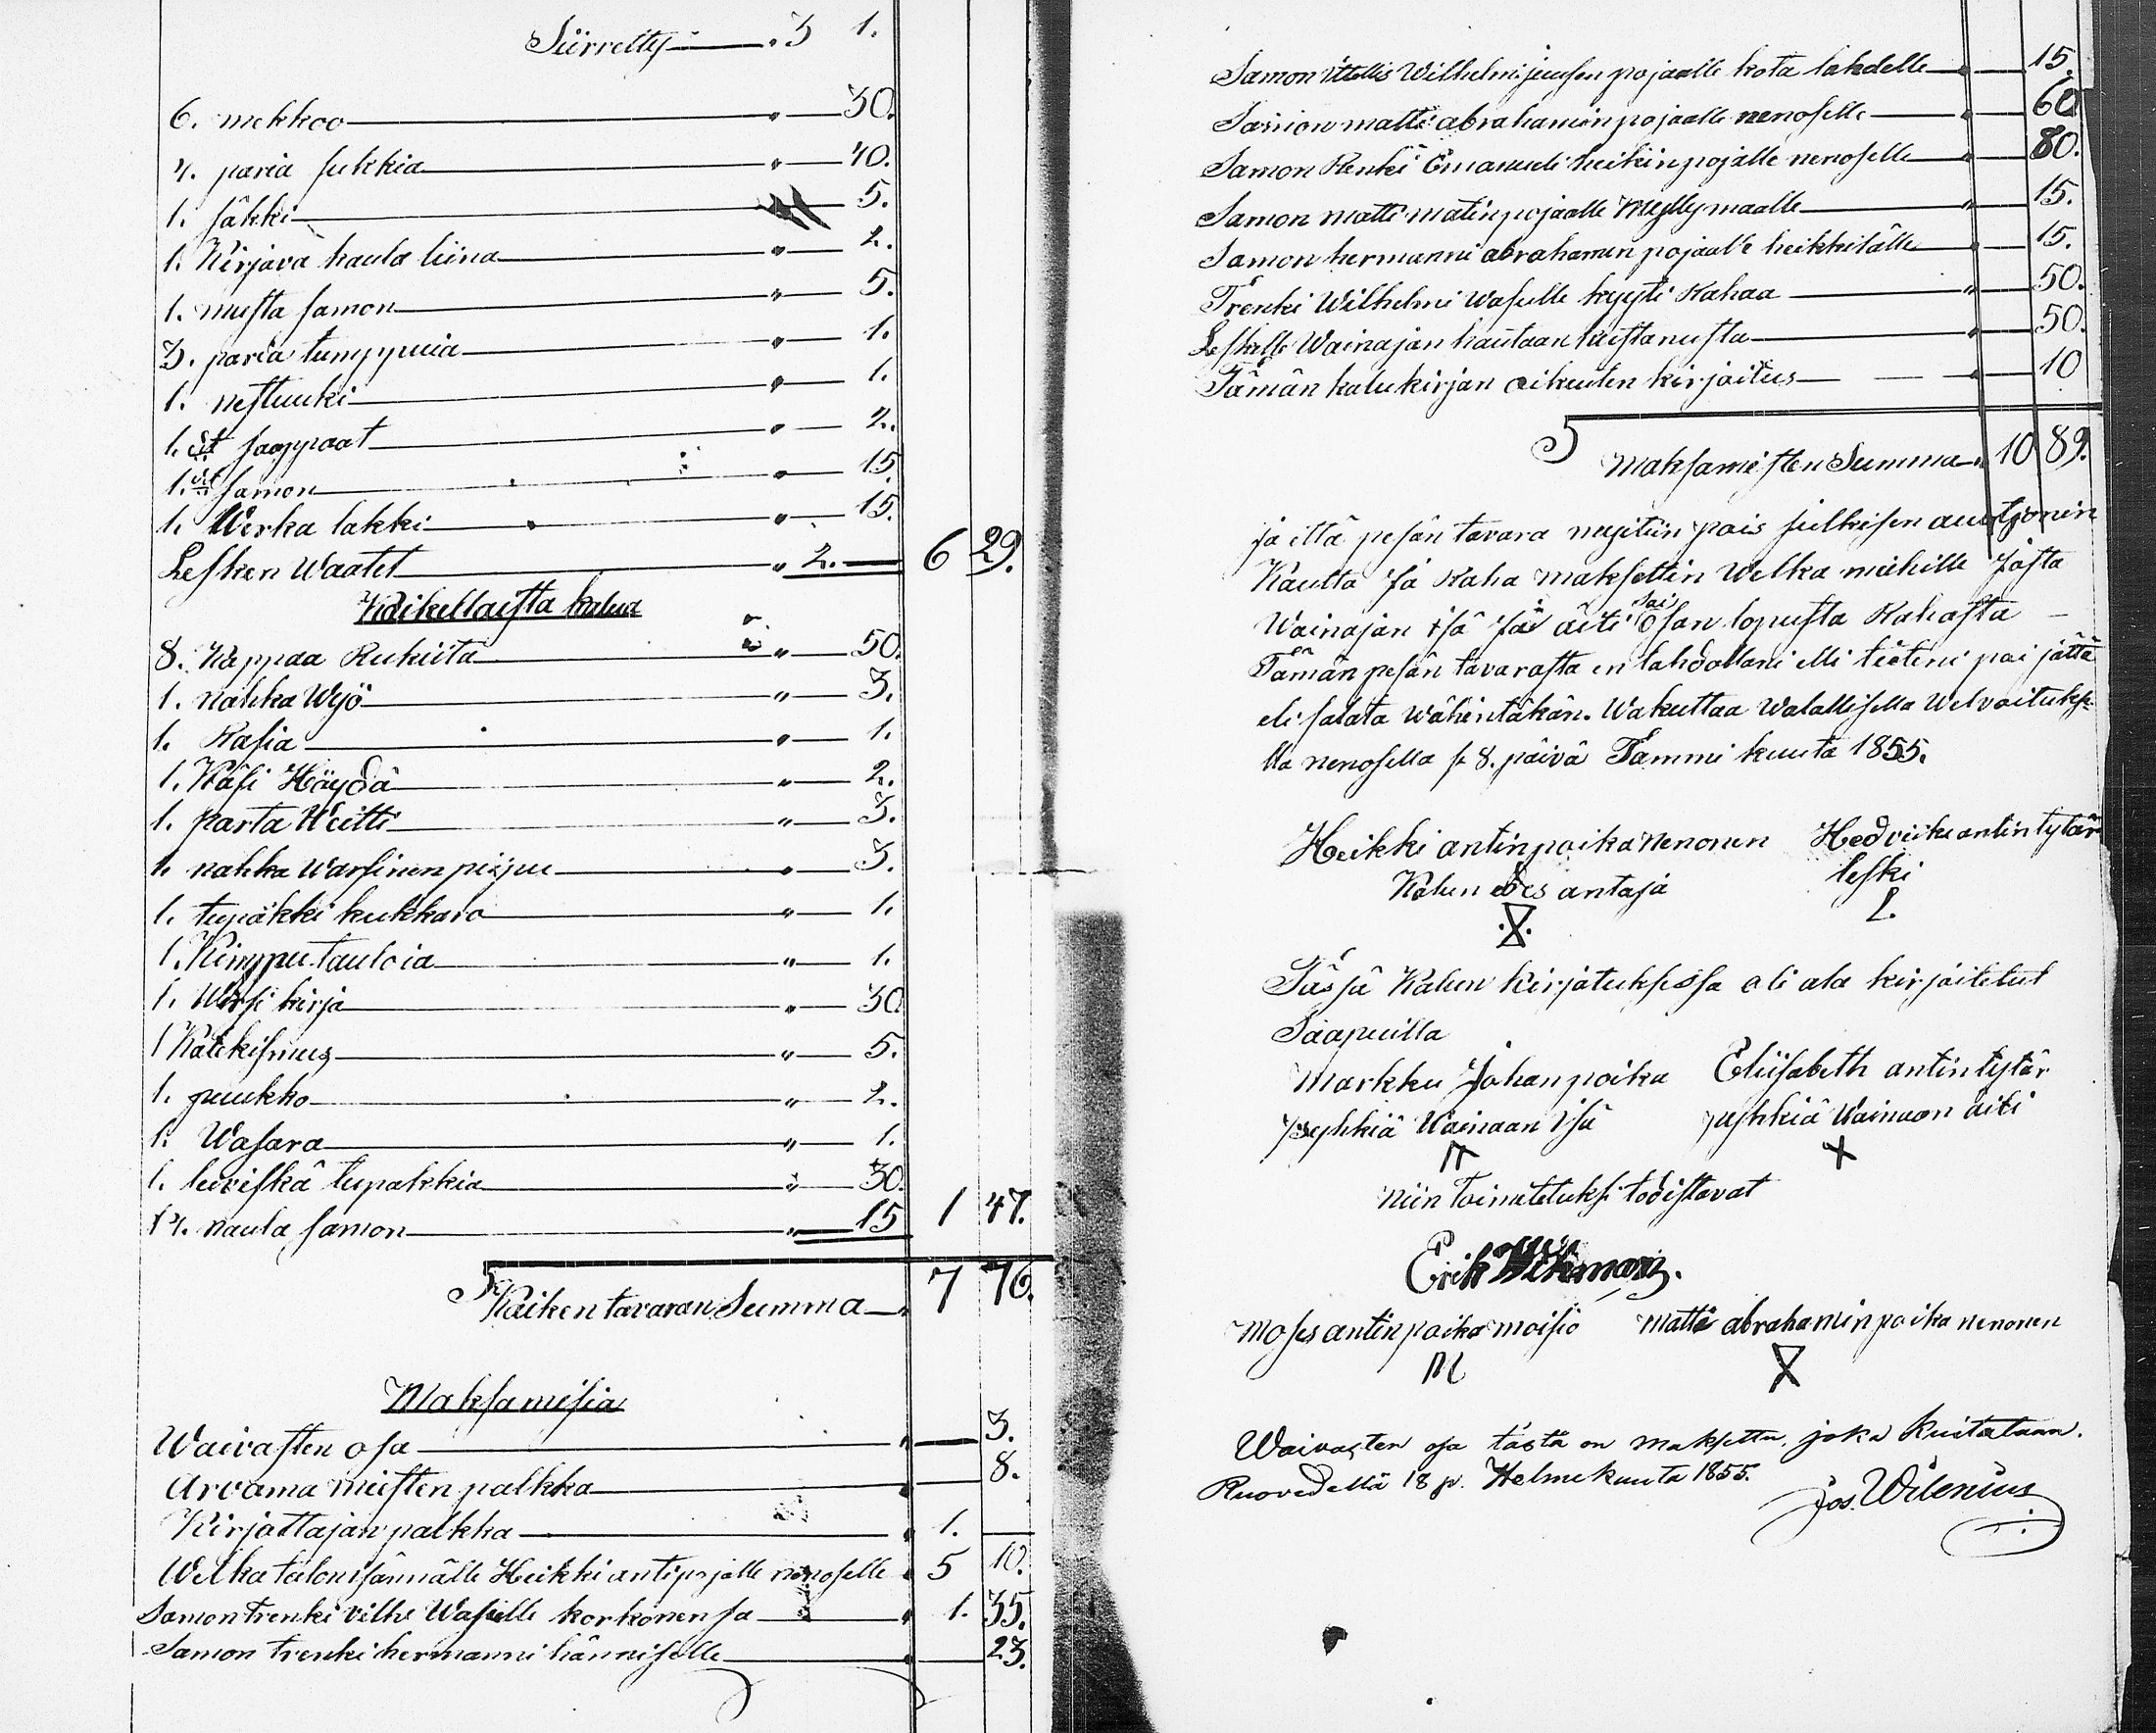 Siirretty " 3 1.
6. mekkoo " 30.
4. paria sukkia " 40.
1. säkki 5.
1. Kirjava kaula liina " 2.
1. musta samon " 5.
3. paria tumppuia " 1.
1. nestuuki " 1.
1. st saappaat " 2.
1. st samon " 15
1. Werka lakki " 15.
Lesken Waatet " 2. 6 29.
Kaikellaista kalua
8. Kappaa Rukiita " 50.
1. nahka Wyö " 3.
1. Rasia " 1.
1. Käsi Höydä " 2.
1. parta Weitti " 3.
1. nahka warsinen piippu " 3.
1. tupakki kukkaro " 1.
1. Kimppu tauloia " 1.
1. Wirsi kirja " 30
1 Katekismus " 5.
1. puukko " 2.
1. Wasara " 1.
1. leiviskä tupakkia " 30.
14. naula samon " 15 1 47.
Kaiken tavaran Summa " 7 76.
Maksamisia
Waivasten osa " 3.
Arvama miesten palkka " 8.
Kirjattajan palkka " 1.
Welka talonisännälle Heikki antipojalle nenoselle " 5 10.
Samon trenki vilhe Wasulle korkonensa " 1. 35.
Samon trenki hermanni hänniselle 23.
Samon ittellis Wilhelmi juusen pojaalle kota lahdelle " 15.
Samon matti abrahamin pojaalle nenoselle " 60
Samon Renki Emanueli heikin pojalle nenoselle " 80.
Samon matti matin pojaalle Myllymaalle " 15.
Samon hermanni abrahamin pojaalle heikkilälle " 15.
Trenki Wilhelmi Wasulle kyyti Rahaa " 50.
Leskelle Wainajan hautaan kustanusta " 50.
Tämän kalukirjan oikeuten kirjoitus " 10
Maksamisten Summa " 10 89.
ja että pesän tavara myitiin pois julkisen auctjonin
Kautta Ja Raha maksettin Welka miehille Josta
Wainajan isä Ja äiti sai osan lopusta Rahasta
Tämän pesän tavarasta en tahdollani elli tieteni poi jättä
eli salata Wähintäkän. Wakuttaa Walallisella Welvoitukse-
lla nenosella p 8. päivä Tammi kuuta 1855.
Heikki antinpoika nenonen Hedviika antintytär
Kalun edes antaja leski
X L.
Tässä Kalun Kirjatuksessa oli ala kirjoitetut
Saapuilla
Markku Johanpoika Eliisabeth antintytär
pyhkiä Wainaan isä pyhkiä Wainaan äiti
X
niin Toimitetuksi todistavat
Erik Wikman.
Moses antinpoika moisio matti abrahaminpoika nenonen
M X
Waivasten osa tästä on maksettu, joka kuitataan.
Ruovedellä 18 p. Helmikuuta 1855.
Jos. Wilenius